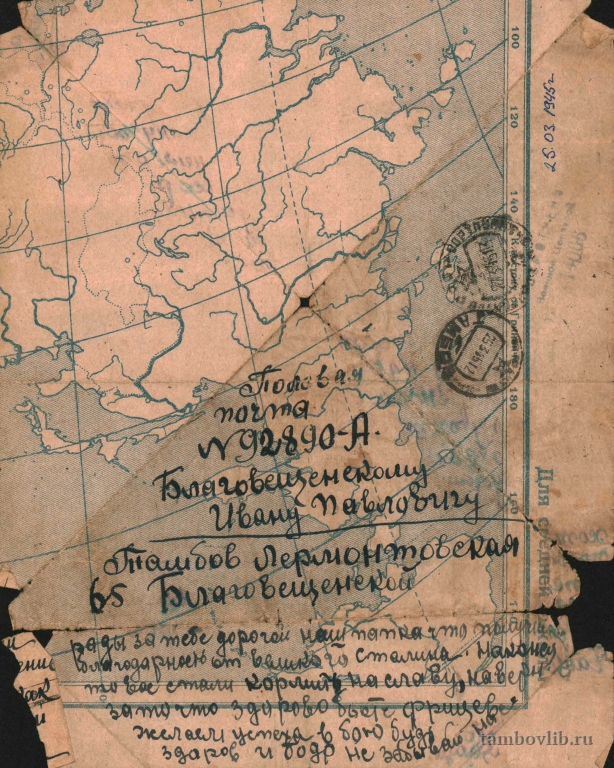 100
120
140
180
25.03.1945г
Для средней
Полевая
почта
№92890-А.
Благовещенскому
Ивану Павловичу
Тамбов Лермонтовская
65 Благовещенской
рады за тебе дорогой наш папка что
благодарность от великого сталина. наконец
то вас стали кормить на славу,
за то что здорово бьете фрицев
желаем успеха в бою будь
здоров и бодр не забывай нас
tambovlib.ru